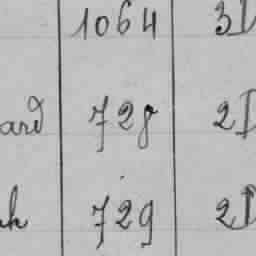 1064 3D
ard 728 2D
h 729 2D